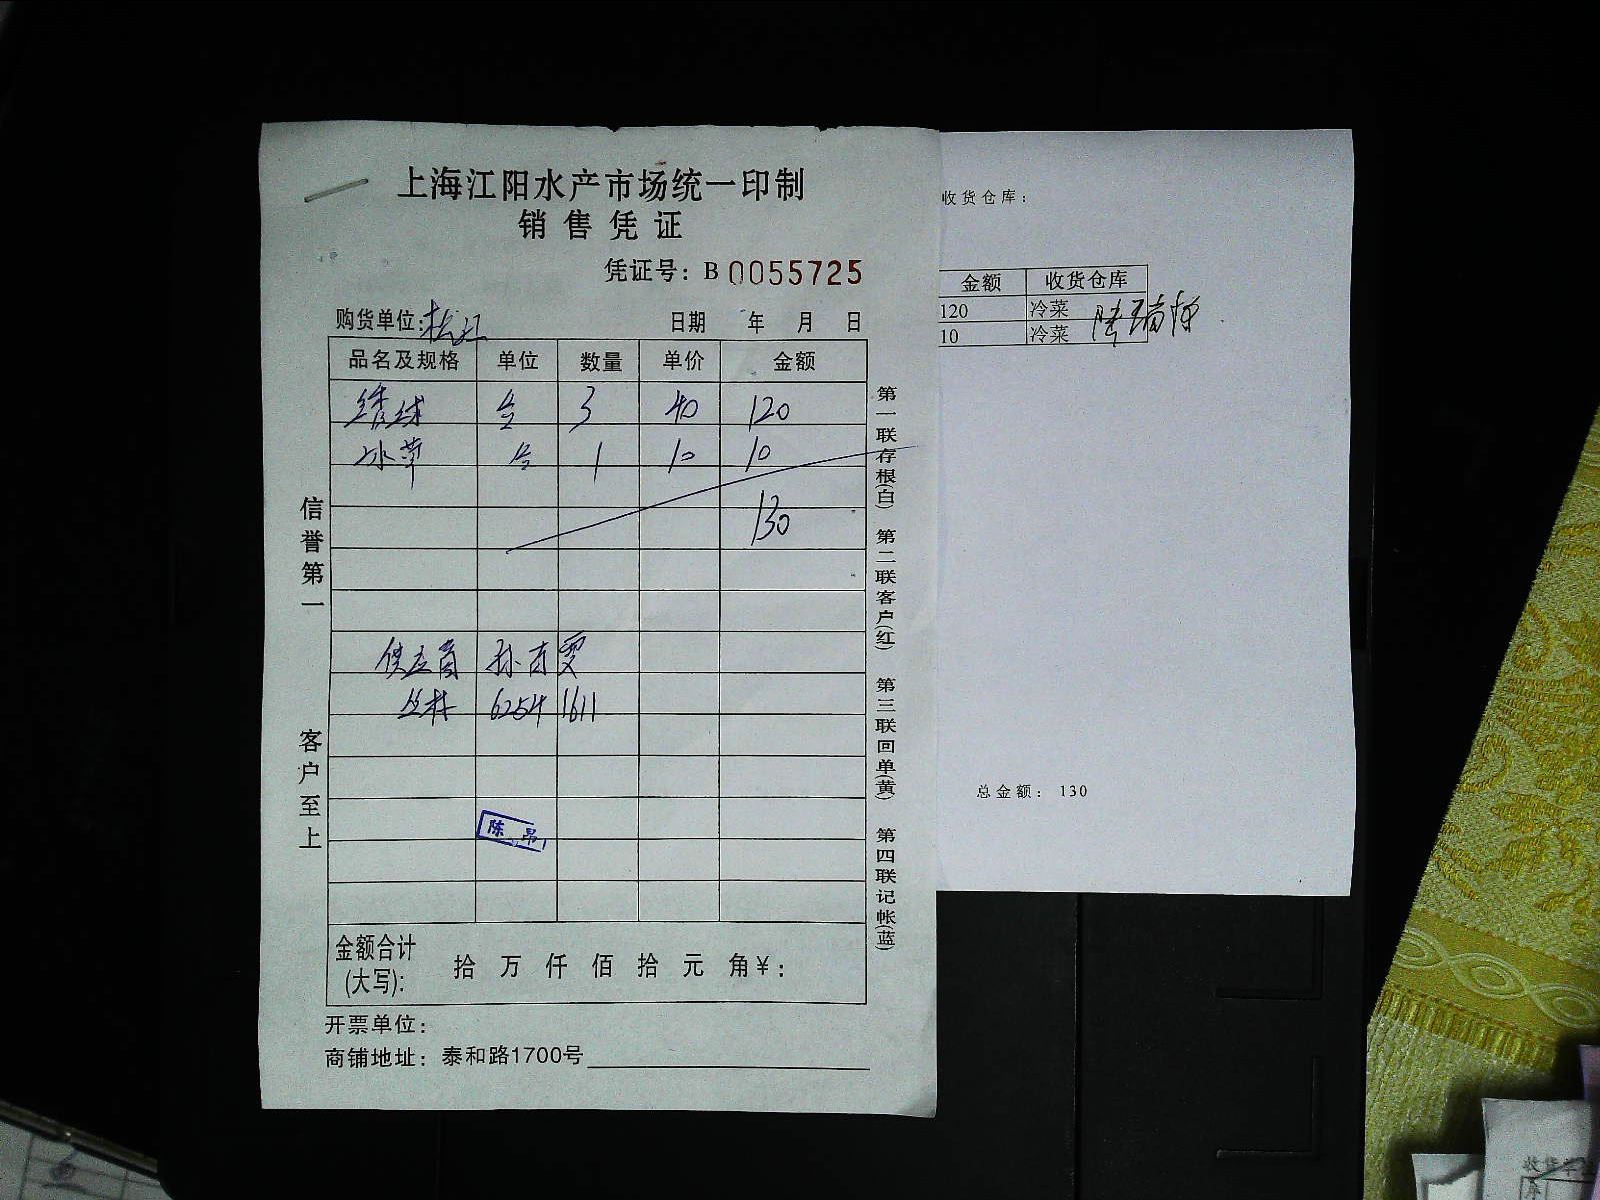 上海江阳水产市场统一印制
销售凭证
凭证号：B 0055725
购货单位：
日期 年 月 日
品名及规格 单位 数量 单价 金额
绣球 合 3 40 120
冰草 合 1 10 10
130
供应商 孙东雯
丛林 6254 1611
陈 昂
金额合计
(大写): 拾 万 仟 佰 拾 元 角￥:
开票单位：
商铺地址：泰和路1700号
信誉第一
客户至上
第一联存根(白) 第二联客户(红) 第三联回单(黄) 第四联记帐(蓝)
收货仓库：
金额 收货仓库
120 冷菜
10 冷菜
总金额： 130